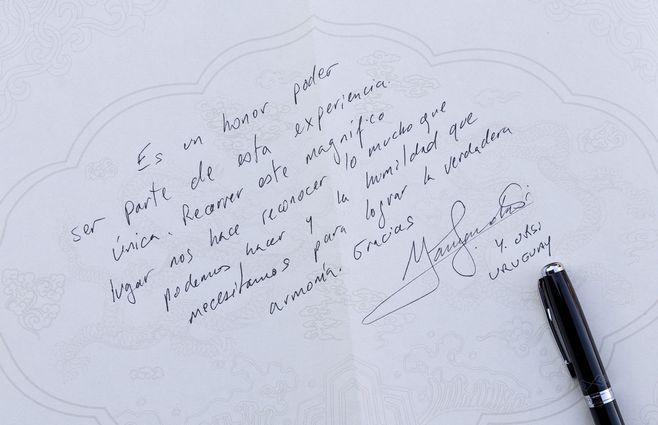 Es un honor poder
ser parte de esta experiencia
única. Recorrer este magnífico
lugar nos hace reconocer lo mucho que
podemos hacer y la humildad que
necesitamos para lograr la verdadera
armonía. Gracias
Y. ORSI
URUGUAY